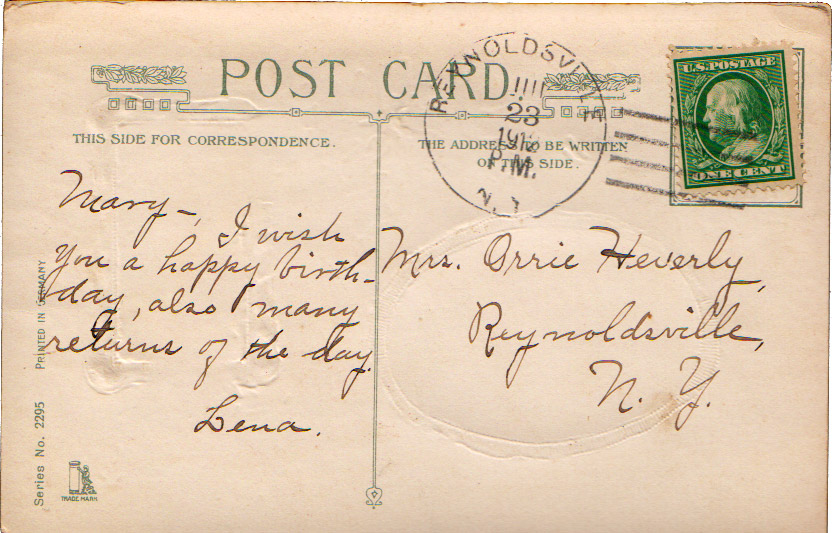 POST CARD
THIS SIDE FOR CORRESPONDENCE.
THE ADDRESS TO BE WRITTEN
ON THIS SIDE.
REYNOLDSVILLE
23
P.M.
N.Y.
U.S. POSTAGE
ONE CENT
Mary-, I wish
you a happy birth-
day, also many
returns of the day.
Lena.
Mrs. Orrie Heverly,
Reynoldsville,
N. Y.
PRINTED IN GERMANY
Series No. 2295
TRADE MARK